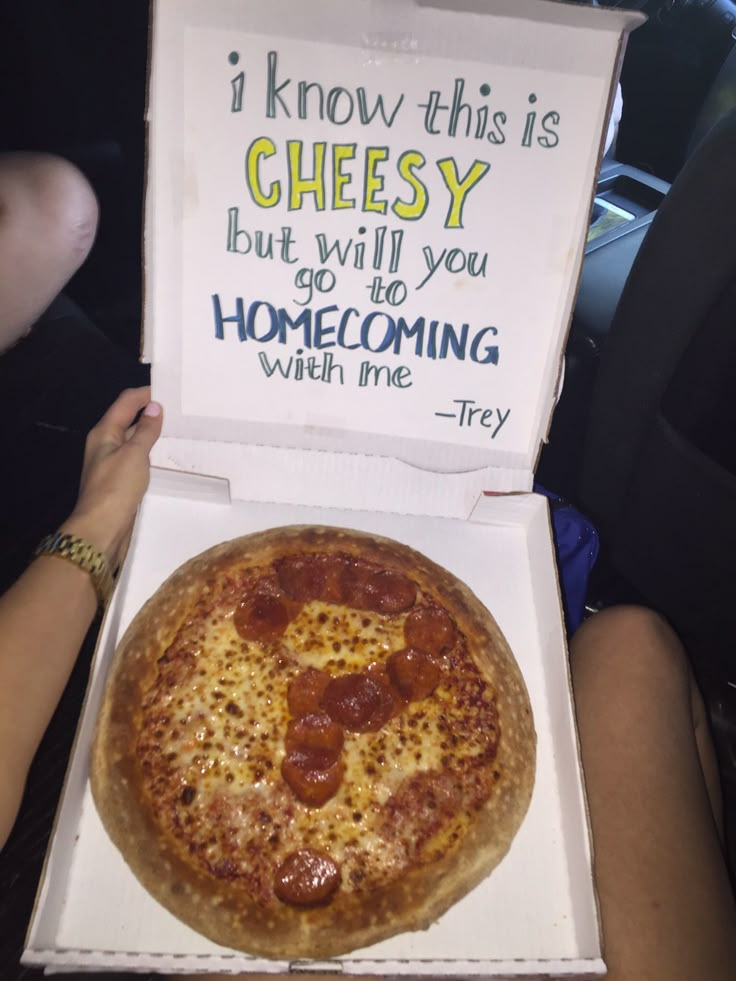 i know this is
CHEESY
but will you
go to
HOMECOMING
with me
–Trey